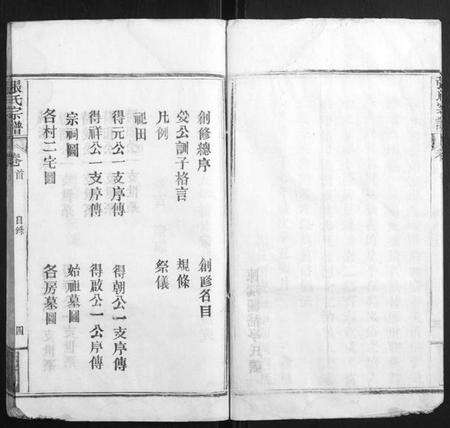 創修總序 創修名目
公訓子格言 規條
凡例 祭儀
祀田
得元公一支序傳 得朝公一支序傳
得祥公一支序傳 得啟公一公序傳
宗祠圖 始祖墓圖
各村二宅圖 各房墓圖
張氏宗譜 卷首 目錄 四